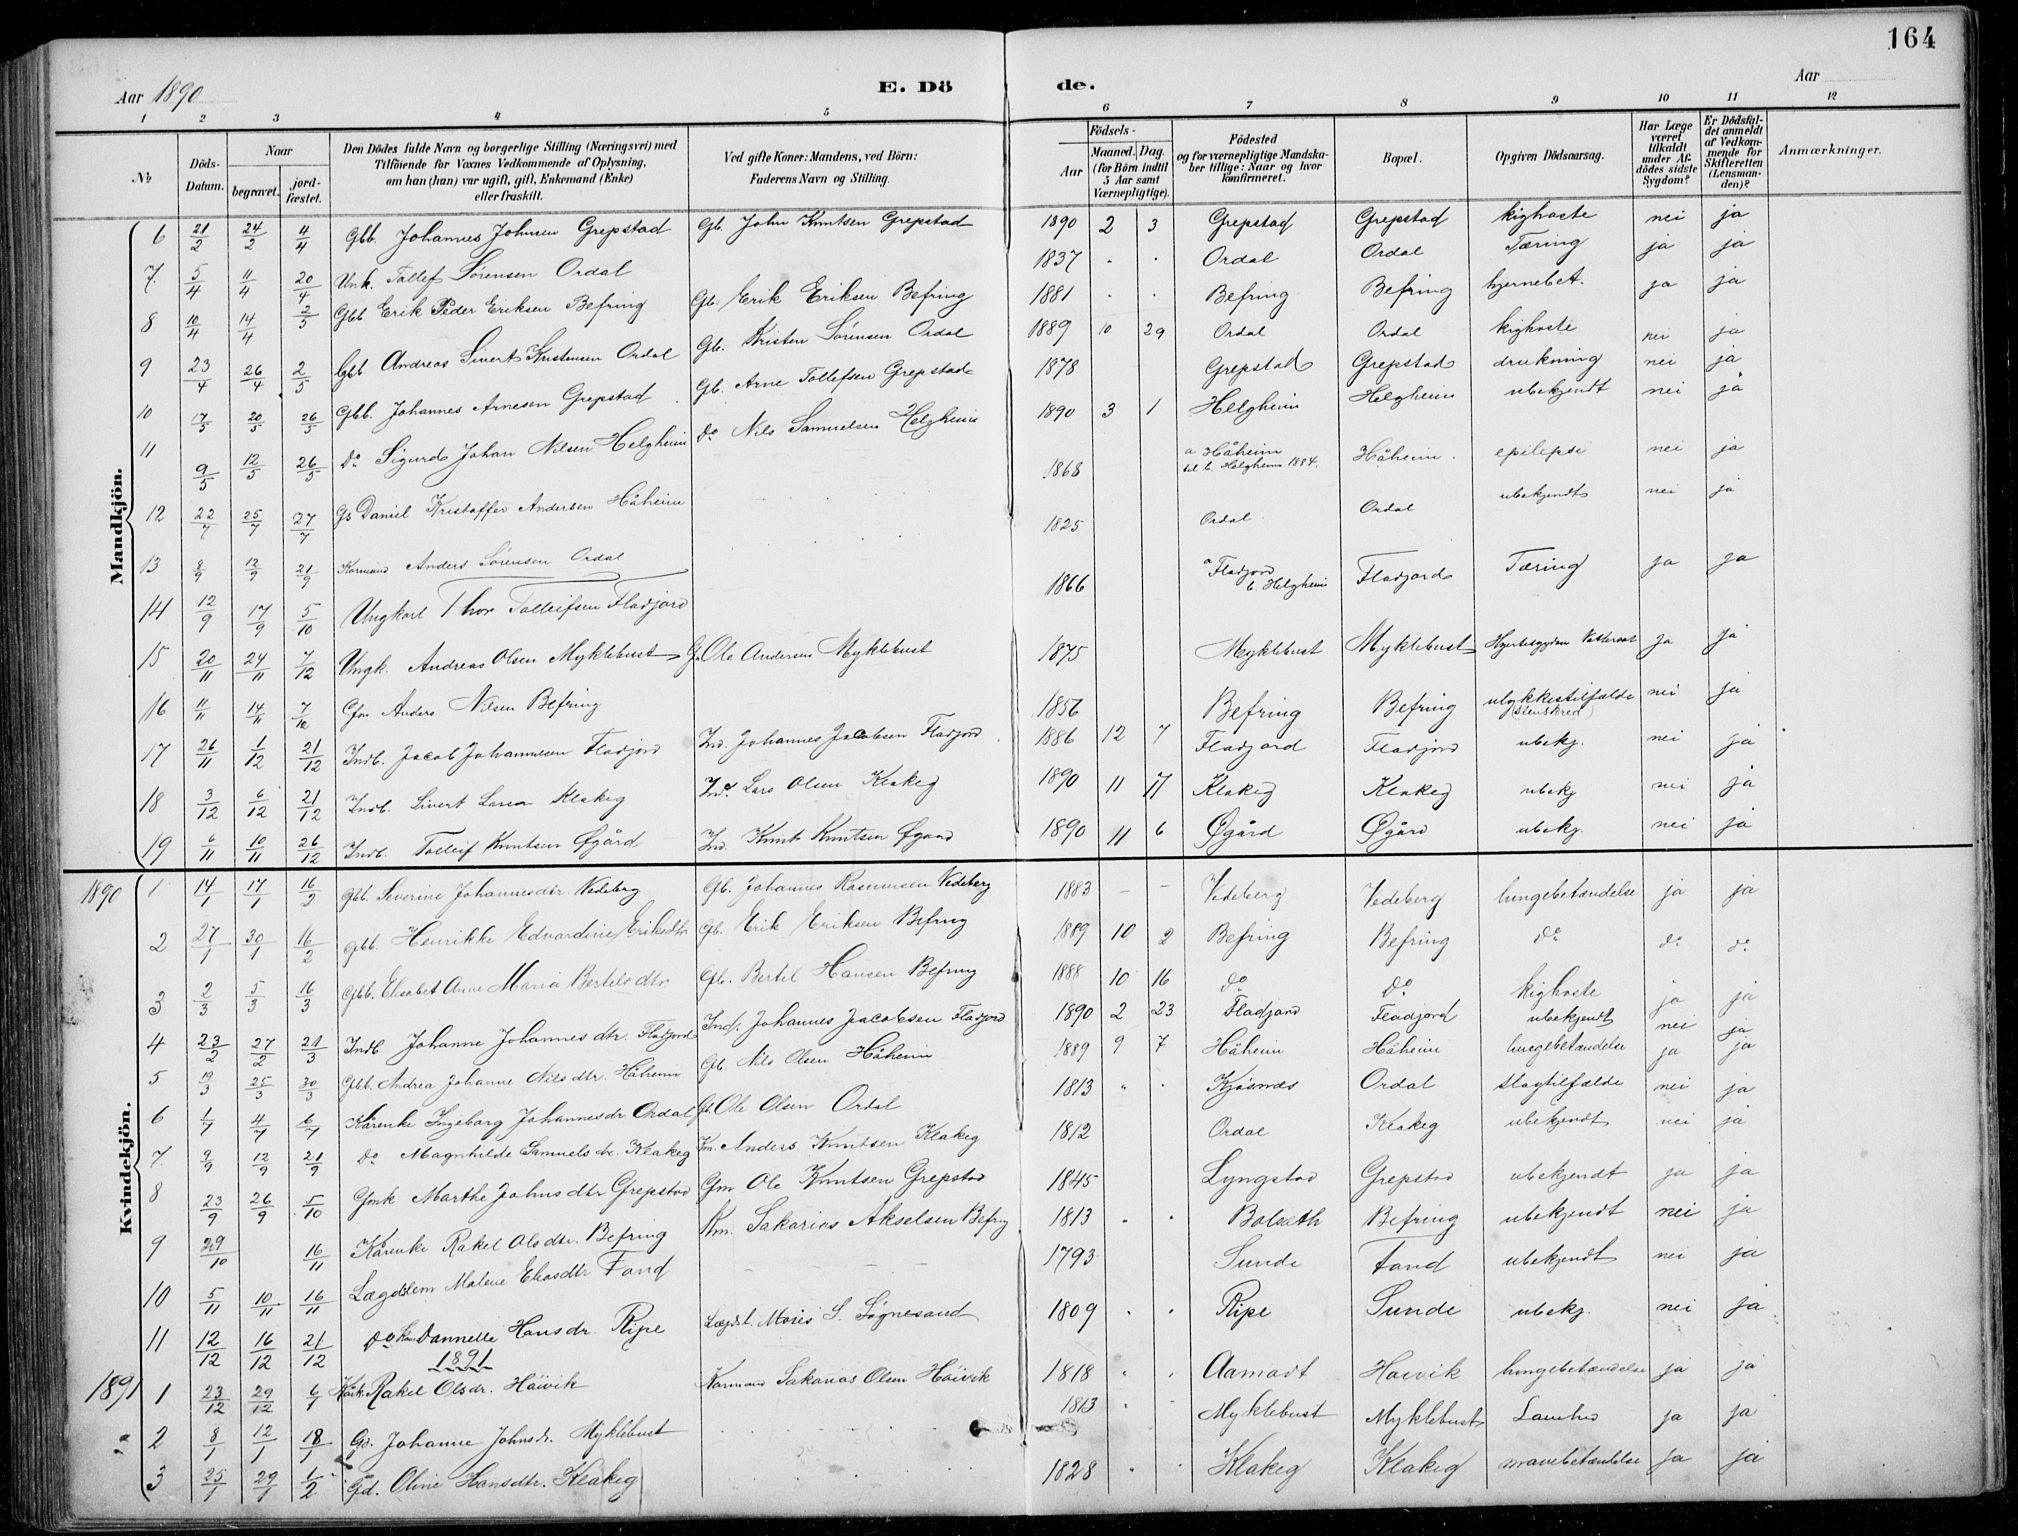 164
Aar 1890
E. Döde.
Aar
1 2 3 4 5 6 7 8 9 10 11 12
№
Döds-Datum.
Naar
begravet.
jordfæstet.
Den Dödes fulde Navn og borgerlige Stilling (Næringsvei) med Tilföiende for Voxnes Vedkommende af Oplysning, om han (hun) var ugift, gift, Enkemand (Enke) eller fraskilt.
Ved gifte Koner: Mandens, ved Börn: Faderens Navn og Stilling.
Födsels-
Aar
Maaned. Dag.
(for Börn indtil 5 Aar samt Værnepligtige).
Födested og for værnepligtige Mandskaber tillige: Naar og hvor konfirmeret.
Bopæl.
Opgiven Dödsaarsag.
Har Læge været tilkaldt under Afdödes sidste Sygdom?
Er Dödsfaldet anmeldt af Vedkommende for Skifteretten (Lensmanden)?
Anmærkninger.
Mandkjön.
6 21/2 24/2 4/4 Gbb. Johannes Johnsen Grepstad Gb. John Knutsen Grepstad 1890 2 3 Grepstad Grepstad kighoste nei ja
7. 5/4 11/4 20/4 Unk. Tollef Sørensen Ordal 1837 " " Ordal Ordal Tæring ja ja
8 10/4 14/4 2/5 Gbb Erik Peder Eriksen Befring Gb. Erik Eriksen Befring 1881 " " Befring Befring hjernebet. ja ja
9 23/4 26/4 2/5 Gbb. Andreas Sivert Kristensen Ordal Gb. Kristen Sørensen Ordal 1889 10 29 Ordal Ordal kighoste nei ja
10 17/5 20/5 26/5 Gbb. Johannes Arnesen Grepstad Gb. Arne Tollefsen Grepstad 1878 Grepstad Grepstad drukning nei ja
11 9/5 12/5 26/5 Do Sigurd Johan Nilsen Helgheim Do Nils Samuelsen Helgheim 1890 3 1 Helgheim Helgheim ubekjendt nei ja
12 22/7 25/7 27/7 Gs Daniel Kristoffer Andersen Håheim 1868 a Håheim b. Helgheim 1884. Håheim. epilepsi nei ja
13 8/9 12/9 21/9 Kårmand Anders Sørensen Ordal 1825 Ordal Ordal ubekjendt nei ja
14 12/9 17/9 5/10 Ungkarl Thor Tolleifsen Fladjord 1866 a Fladjord b. Helgheim Fladjord Tæring ja ja
15 20/11 24/11 7/12 Ungk. Andreas Olsen Myklebust G. Ole Andersen Myklebust 1875 Myklebust Myklebust Hjertesygdom Vattersot ja ja
16 11/11 14/11 7/12 Gm Anders Nilsen Befring 1856 Befring Befring ulykkestilfælde (stenskred) nei ja
17 26/11 1/12 21/12 Indb. Jacob Johannesen Fladjord Ind. Johannes Jacobsen Fladjord 1886 12 7 Fladjord Fladjord ubekj. nei ja
18 3/12 6/12 21/12 Indb. Sivert Larsen Klakeg Ind. Lars Olsen Klakeg 1890 11 17 Klakeg Klakeg ubekj nei ja
19 6/11 10/11 26/12 Indb. Tolleif Knutsen Øgård Ind. Knut Knutsen Øgaard 1890 11 6 Øgård Øgård ubekj. nei ja
Kvindekjön.
1890 1 14/1 17/1 16/2 Gbb. Severine Johannesdtr. Vedeberg Gb. Johannes Rasmusen Vedeberg 1883 — — Vedeberg Vedeberg lungebetændelse ja ja
2 27/1 30/1 16/2 Gbb. Henrikke Edvardine Eriksdtr Gb. Erik Eriksen Befring 1889 10 2 Befring Befring do do do
3 2/3 5/3 16/3 Gbb. Elsabet Anne Maria Bertels dtr Gb. Bertel Hansen Befring 1888 10 16 Do Do kighoste ja ja
4 23/2 27/2 21/3 Indb Johanne Johannes dtr. Fladjord Ind. Johannes Jacobsen Fladjord 1890 2 23 Fladjord Fladjord ubekjendt nei ja
5 19/3 25/3 30/3 Gbb. Andrea Johanne Nils dtr. Håheim Gb. Nils Olsen Håheim 1889 9 7 Håheim Håheim lungebetændelse ja ja
6 1/7 4/7 6/7 Kårenke Ingeborg Johannesdr. Ordal G. Ole Olsen Ordal 1813 " " Kjøsnæs Ordal slagtilfælde nei ja
7. 9/9 12/9 21/9 Do Magnhilde Samuels dr. Klakeg Km. Anders Knutsen Klakeg 1812 Ordal Klakeg ubekjendt nei ja
8 23/9 26/9 5/10 Gmk Marthe Johns dtr Grepstad Gm Ole Knutsen Grepstad 1845 Lyngstad Grepstad ubekjendt ja ja
9 29/10 16/11 Kårenke Rakel Olsdtr. Befring Km. Sakarias Akselsen Befring 1813 " " Bolsæth Befring ubekjendt nei ja
10 5/11 10/11 16/11 Lægdslem Malene Eliasdtr Fond 1793 Sunde Fond ubekjendt nei ja
11 12/12 16/12 21/12 Do Dannelle Hansdr. Ripe Lægdsl. Moses S. Søgnesand 1809 " " Ripe Sunde ubekj. nei ja
1891
1891 1 23/12 29/12 6/1 Kårk. Rakel Olsdr. Håivik Kormand Sakarias Olsen Håivik 1818 " " Aamodt Haivik lungebetændelse ja ja
2 8/1 12/1 18/1 Gd. Johanne Johnsdr. Myklebust 1813 " " Myklebust Myklebust ja ja
3 25/1 29/1 1/2 Gd. Oline Hansdtr. Klakeg 1828 " " Klakeg Klakeg mavebetændelse ja ja